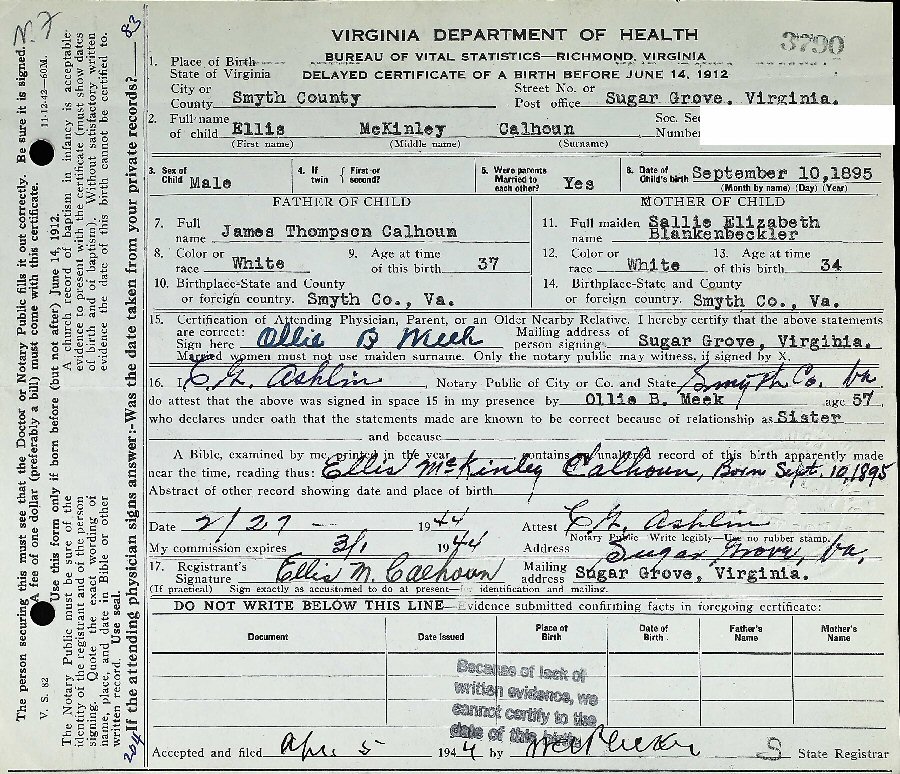 VIRGINIA DEPARTMENT OF HEALTH
3790
BUREAU OF VITAL STATISTICS—RICHMOND, VIRGINIA
DELAYED CERTIFICATE OF A BIRTH BEFORE JUNE 14, 1912
1. Place of Birth
State of Virginia
City or County Smyth County Street No. or Post office Sugar Grove, Virginia.
2. Full name of child Ellis McKinley Calhoun Soc. Sec Number
(First name) (Middle name) (Surname)
3. Sex of Child Male 4. If twin { First or second? 5. Were parents Married to each other? Yes 6. Date of Child's birth September 10,1895
(Month by name) (Day) (Year)
FATHER OF CHILD MOTHER OF CHILD
7. Full name James Thompson Calhoun 11. Full maiden name Sallie Elizabeth Blankenbeckler
8. Color or race White 9. Age at time of this birth 37 12. Color or race White 13. Age at time of this birth 34
10. Birthplace-State and County or foreign country. Smyth Co., Va. 14. Birthplace-State and County or foreign country. Smyth Co., Va.
15. Certification of Attending Physician, Parent, or an Older Nearby Relative. I hereby certify that the above statements
are correct: Sign here Ollie B Meek Mailing address of person signing. Sugar Grove, Virginia.
Married women must not use maiden surname. Only the notary public may witness, if signed by X.
16. I, C. G. Ashlin, Notary Public of City or Co. and State, Smyth Co. Va
do attest that the above was signed in space 15 in my presence by Ollie B. Meek age 57
who declares under oath that the statements made are known to be correct because of relationship as Sister
and because
A Bible, examined by me, printed in the year contains an unaltered record of this birth apparently made
near the time, reading thus: Ellis McKinley Calhoun, Born Sept. 10, 1895
Abstract of other record showing date and place of birth
Date 2/27 — 1944 Attest C. G. Ashlin
Notary Public Write legibly—Use no rubber stamp.
My commission expires 3/1 1944 Address Sugar Grove, Va.
17. Registrant's Signature Ellis M. Calhoun Mailing address Sugar Grove, Virginia.
(If practical) Sign exactly as accustomed to do at present—for identification and mailing.
DO NOT WRITE BELOW THIS LINE—Evidence submitted confirming facts in foregoing certificate:
Document Date Issued Place of Birth Date of Birth Father's Name Mother's Name
Because of lack of
written evidence, we
cannot certify to the
date of this birth
Accepted and filed Apr. 5 1944 by State Registrar
N. F
The person securing this must see that the Doctor or Notary Public fills it out correctly. Be sure it is signed.
A fee of one dollar (preferably a bill) must come with this certificate.
V. S. 82
11-12-42—60M.
Use this form only if born before (but not after) June 14, 1912.
The Notary Public must be sure of the
identity of the registrant and of the person
signing. Quote the exact wording of
name, place, and date in Bible or other
written record. Use seal.
A church record of baptism in infancy is acceptable
evidence to present with the certificate (must show dates
of birth and of baptism). Without satisfactory written
evidence the date of this birth cannot be certified to.
204 If the attending physician signs answer:-Was the date taken from your private records? 83